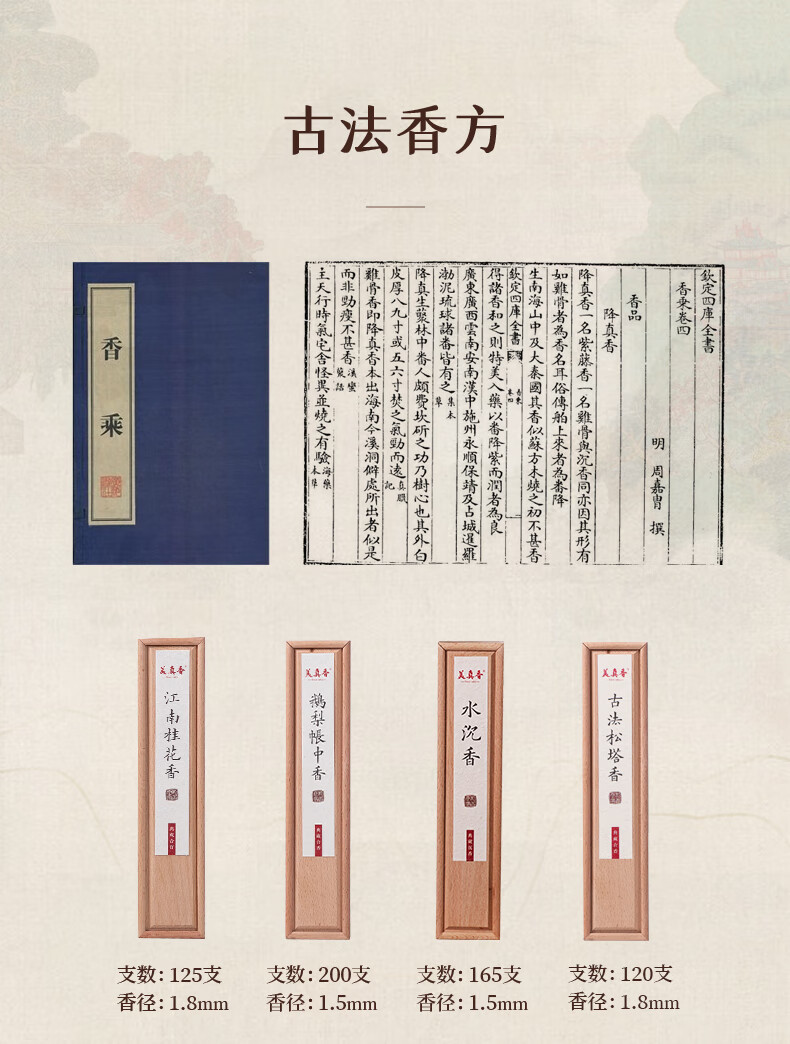 古法香方
香乘
欽定四庫全書
香乗卷四
明 周嘉胄 撰
香品
降真香
降真香一名紫藤香一名雞骨與沉香同亦因其形有
如雞骨者為香名耳俗傳舶上來者為番降
生南海山中及大秦國其香似蘇方木燒之初不甚香
欽定四庫全書
香乗
卷四
得諸香和之則特美入藥以番降紫而潤者為良
廣東廣西雲南安南漢中施州永順保靖及占城暹羅
渤泥琉球諸番皆有之集本草
降真生藂林中番人頗費坎斫之功乃樹心也其外白
皮厚八九寸或五六寸焚之氣勁而遠真臘記
雞骨香即降真香本出海南今溪洞僻處所出者似是
而非勁瘦不甚香溪蠻叢話
主天行時氣宅舍怪異並燒之有驗海藥本草
美真香
江南桂花香
典藏合香
美真香
鵝梨帳中香
典藏合香
美真香
水沉香
美真香
古法松塔香
典藏合香
支数:125支
香径:1.8mm
支数:200支
香径:1.5mm
支数:165支
香径:1.5mm
支数:120支
香径:1.8mm